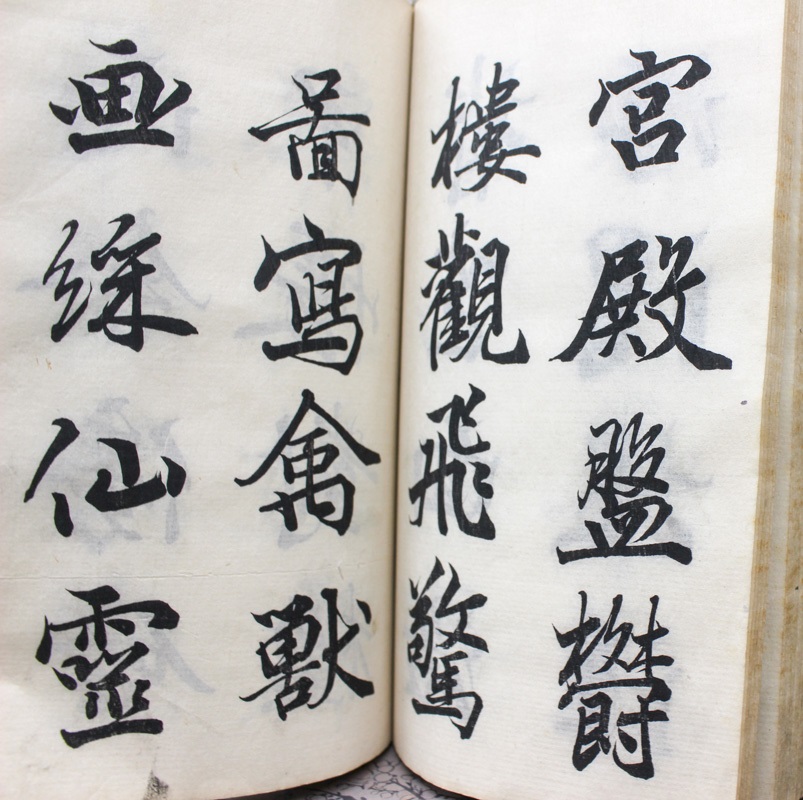 宮殿盤欝
樓觀飛驚
圖寫禽獸
画綵仙靈